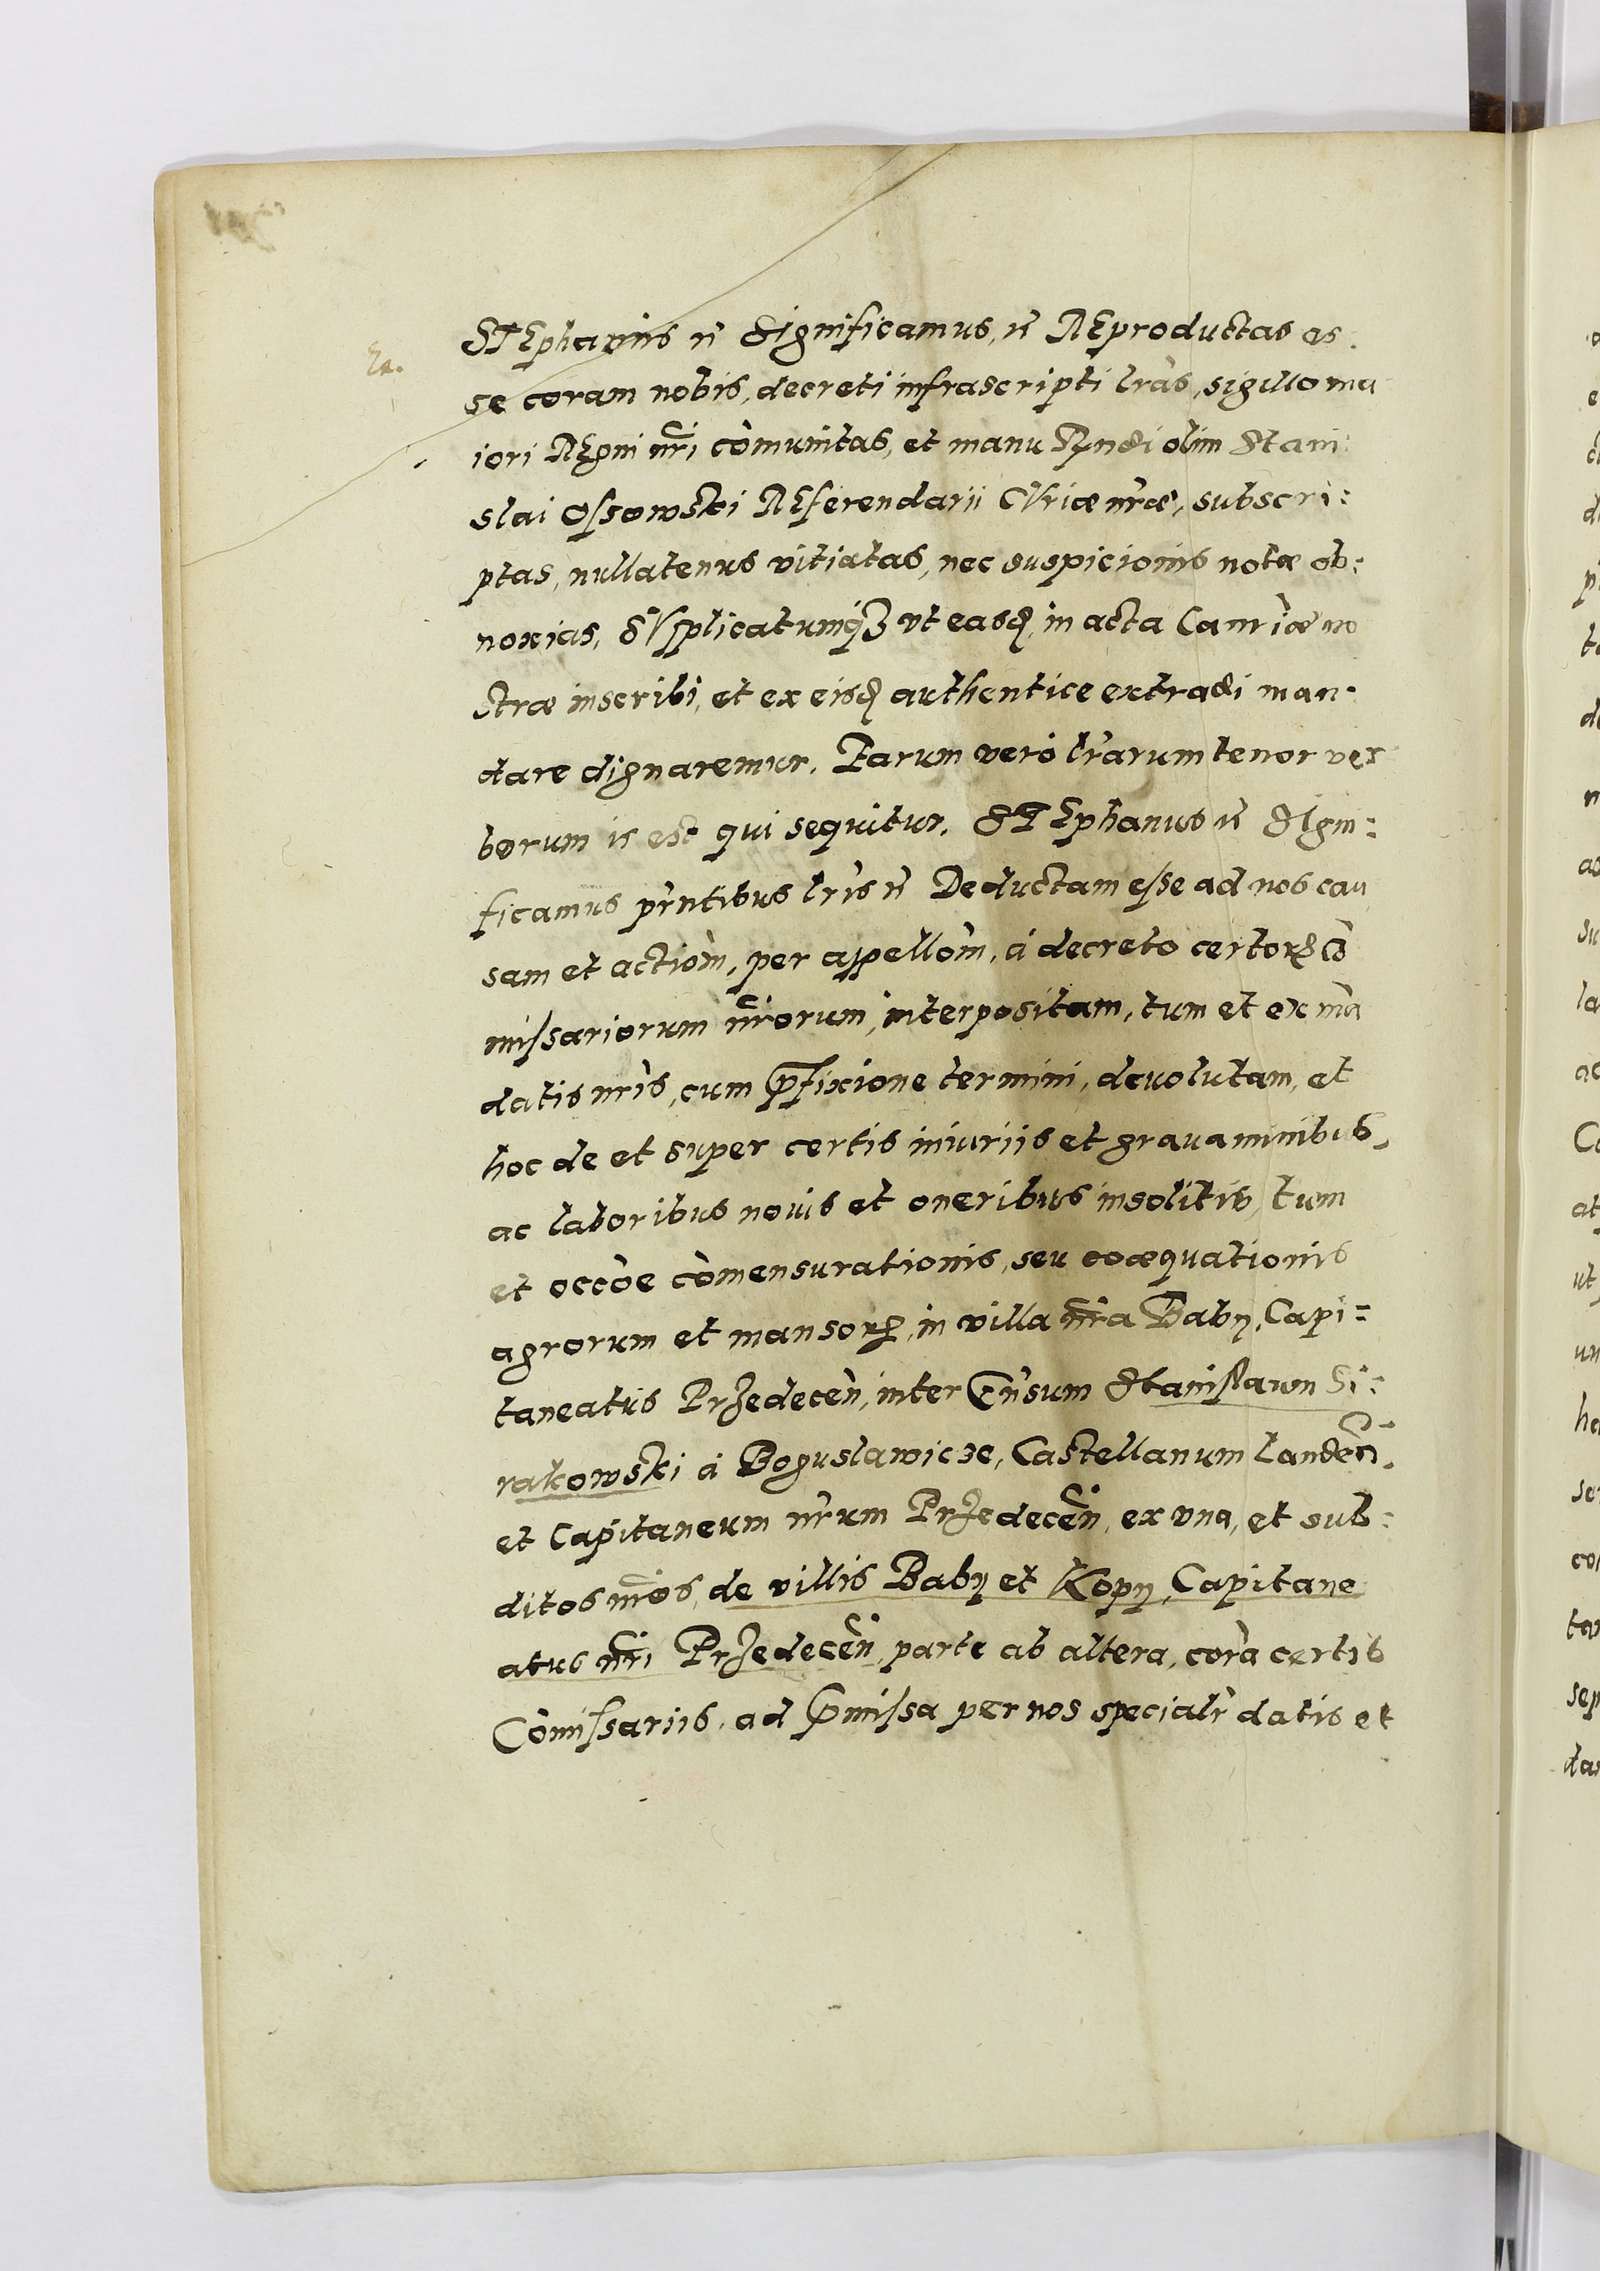 STEphanus etc Significamus, etc REproductas es:
se coram nobis, decreti infrascripti lras, sigillo ma
iori REgni nri còmunitas, et manu Rndi olim Stani:
slai Ossowski REferendarii CUriæ nræ, subscri:
ptas, nullatenus vitiatas, nec suspicionis notæ ob:
noxias, SUpplicatumq₃ ut easd, in acta Canriæ no
stræ inscribi, et ex eisd authentice extradi man:
dare dignaremur. Earum vero lrarum tenor ver
borum is est qui sequitur. STEphanus etc SIgni:
ficamus pntibus lris etc Deductam esse ad nos cau
sam et actiom, per appellom, a decreto certoꝝ Co
missariorum nrorum, interpositam, tum et ex ma
datis nris, cum pfixione termini, devolutam, et
hoc de et super certis iniuriis et gravaminibus,
ac laboribus novis et oneribus insolitis, tum
et occòe còmensurationis, seu coæquationis
agrorum et mansoꝝ, in villa nra Baby, Capi:
taneatus Przedecen, inter Gnsum Stanislaum Si:
rakowski a Boguslawicze, Castellanum Landen.
et Capitaneum nrum Przedecen, ex una, et sub:
ditos nros, de villis Baby et Kopy, Capitane
atus nri Przedecen, parte ab altera, corà certis
Còmissariis, ad pmissa per nos specialr datis et